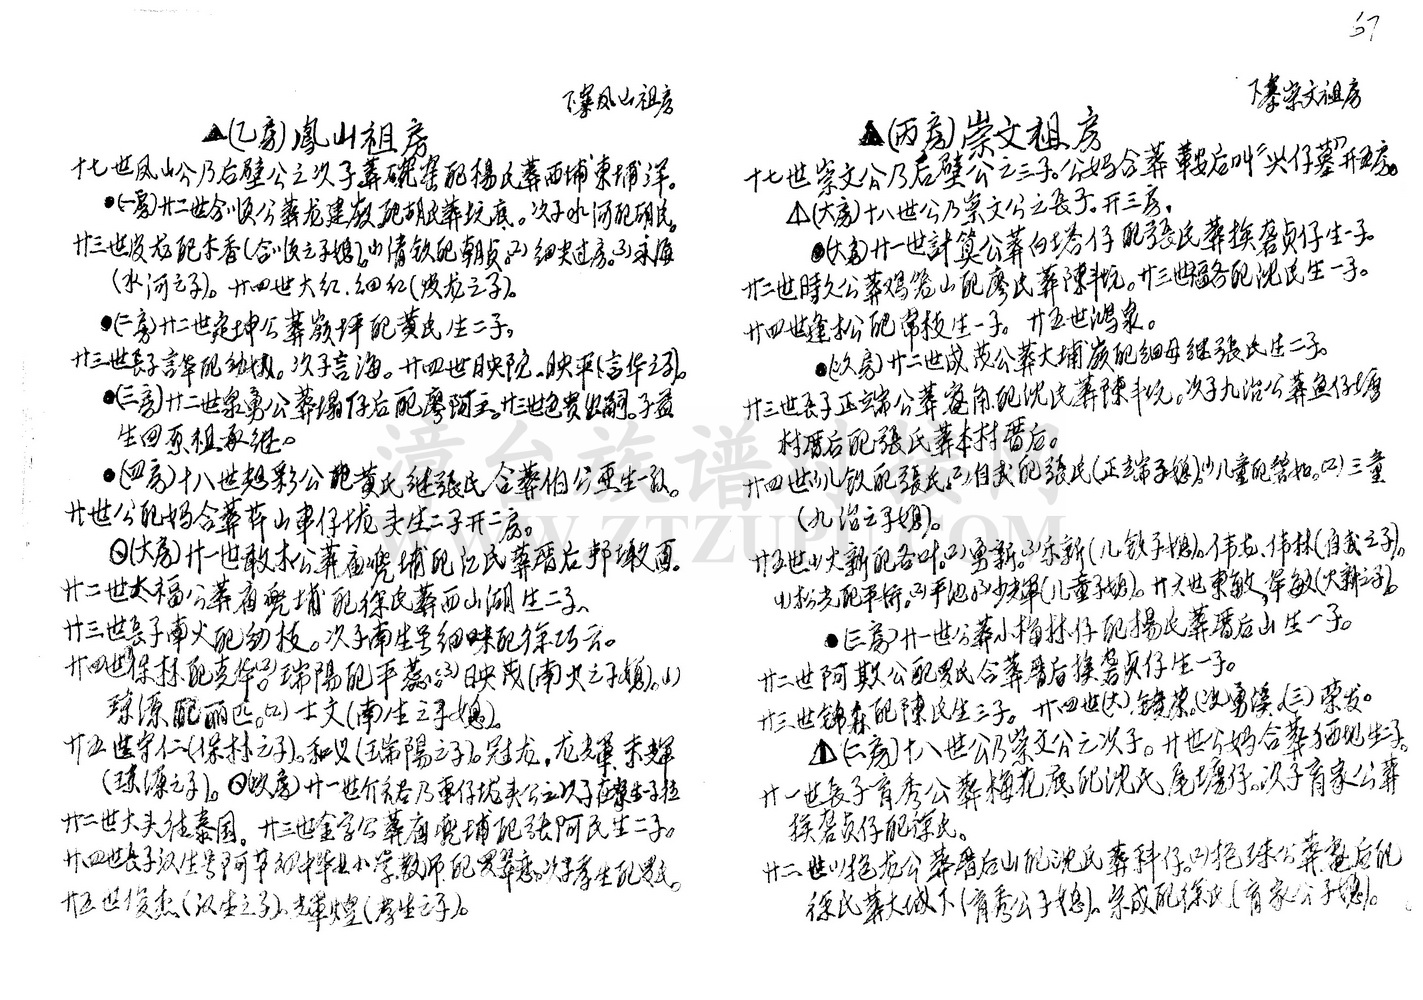 67
下寨凤山祖房
▲(乙房)鳳山祖房
十七世凤山公乃后壁公之次子葬碗窑配楊氏葬西埔東埔洋。
●(一房)廿二世合順公葬龙建嶺配胡氏葬坑底。次子水河配胡氏。
廿三世 龙配木香(合順之子媳)。(1)清钦配朝貞(2)细夫过房。(3)永海
(水河之子)。廿四世大红.细红( 龙之子)。
●(二房)廿二世定坤公葬嶺坪配黄氏生二子。
廿三世長子言华配幼 。次子言海。廿四世映院.映平(言华之子)。
●(三房)廿二世泉勇公葬塭仔后配廖阿 。廿三世 贵出嗣。子益
生四 祖承继。
●(四房)十八世想彩公配黄氏继張氏合葬伯公 生一子。
廿世公配妈合葬 山車仔垅头生二子开二房。
(大房)廿一世敢木公葬庙兜埔配江氏葬厝后 墩面。
廿二世大福公葬庙兜埔配徐氏葬西山湖生二子、
廿三世長子南火配幼枝。次子南生号细味配徐巧云。
廿四世保林配克华(2)瑞陽配平蕊(3)映茂(南火之子媳)。(1)
琼源配丽匹。(2)士文(南生之子媳)。
廿五世宇仁(保林之子)。和义(瑞陽之子)。冠龙.龙輝 輝
(琼源之子)。 (次房)廿一世 乃車仔垅头公之次子
廿二世大头往泰国。廿三世金字公葬庙兜埔配張阿民生二子。
廿四世長子汉生号阿草 小学教师配 翠恋。次子孝生配 氏。
廿五世俊杰(汉生之子)、輝煌(孝生之子)。
下寨崇文祖房
▲(丙房)崇文祖房
十七世崇文公乃后壁公之三子。公妈合葬鞍后叫“兴仔墓”开五房。
(大房)十八世公乃崇文公之長子。开三房,
●(大房)廿一世計算公葬白塔仔配張氏葬挨砻贞仔生一子。
廿二世時久公葬鸡笼山配廖氏葬陳坑。廿三世福务配沈氏生一子。
廿四世逢松配常枝生一子。廿五世鴻泉。
●(次房)廿二世成茂公葬大埔嶺配细母继張氏生二子。
廿三世長子正端公葬 角配沈氏葬陳坑。次子九治公葬魚仔塘
村厝后配張氏葬本村厝后。
廿四世(1)儿钦配張氏。(2)自武配張氏(正端子媳)。(1)儿童配 。(2)三童
(九治之子媳)。
廿五世(1)火新配杏叶。(2)勇新。(3)永新(儿钦子媳)。伟 、伟林(自武之子)。
(1)松光配平 。(2)平池(3)少輝(儿童子媳)。廿六世東敏、军敏(火新之子)。
●(三房)廿一世公葬小梅林仔配楊氏葬厝后山生一子。
廿二世阿欺公配罗氏合葬厝后挨砻贞仔生一子。
廿三世錦森配陳氏生三子。廿四世(大).镜荣。(次)勇溪。(三)荣发。
(二房)十八世公乃崇文公之次子。廿世公妈合葬猫 生子。
廿一世長子育秀公葬梅花底配沈氏 尾墻仔。次子育家公葬
挨砻贞仔配徐氏。
廿二世(1)抱龙公葬厝后山配沈氏葬科仔。(2)抱球公葬 后配
徐氏葬大 下(育秀公子媳)。宗成配徐氏(育家公子媳)。
漳台族谱对接网
WWW.ZTZUPU.COM